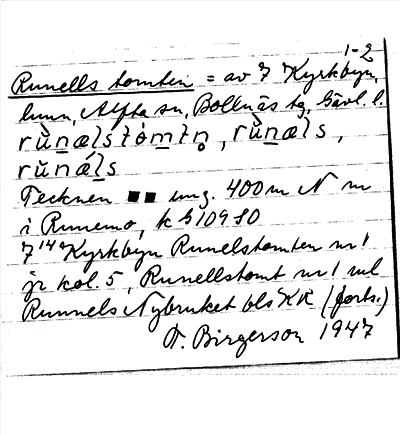 1-2
Runells tomten = av 7 Kyrkbyn,
hmn, Alfta sn, Bollnäs tg, Gävl. l.
rùnælstòmtn, rùnæls,
rŭnǽls
Tecknen ■■ ung. 400 m N m
i Runemo, k G 109 80
7 14a Kyrkbyn Runelstomten nr 1
jr kol. 5, Runellstomt nr 1 ml
Runnels Nybruket bls KK (forts.)
F. Birgerson 1947